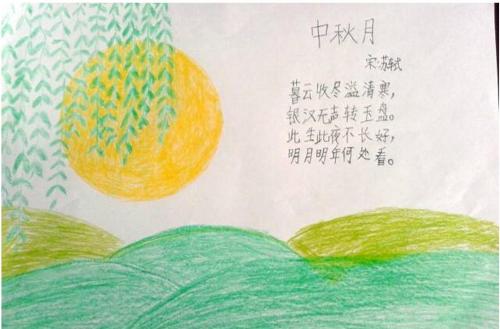 中秋月
宋·苏轼
暮云收尽溢清寒，
银汉无声转玉盘。
此生此夜不长好，
明月明年何处看。